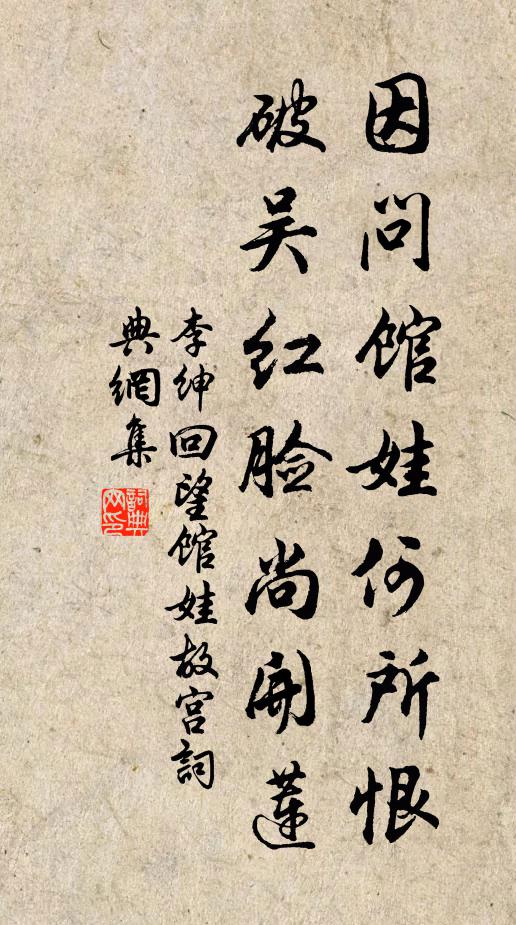 因问馆娃何所恨
破吴红脸尚开莲
李绅回望馆娃故宫词
典網集
詞典網印